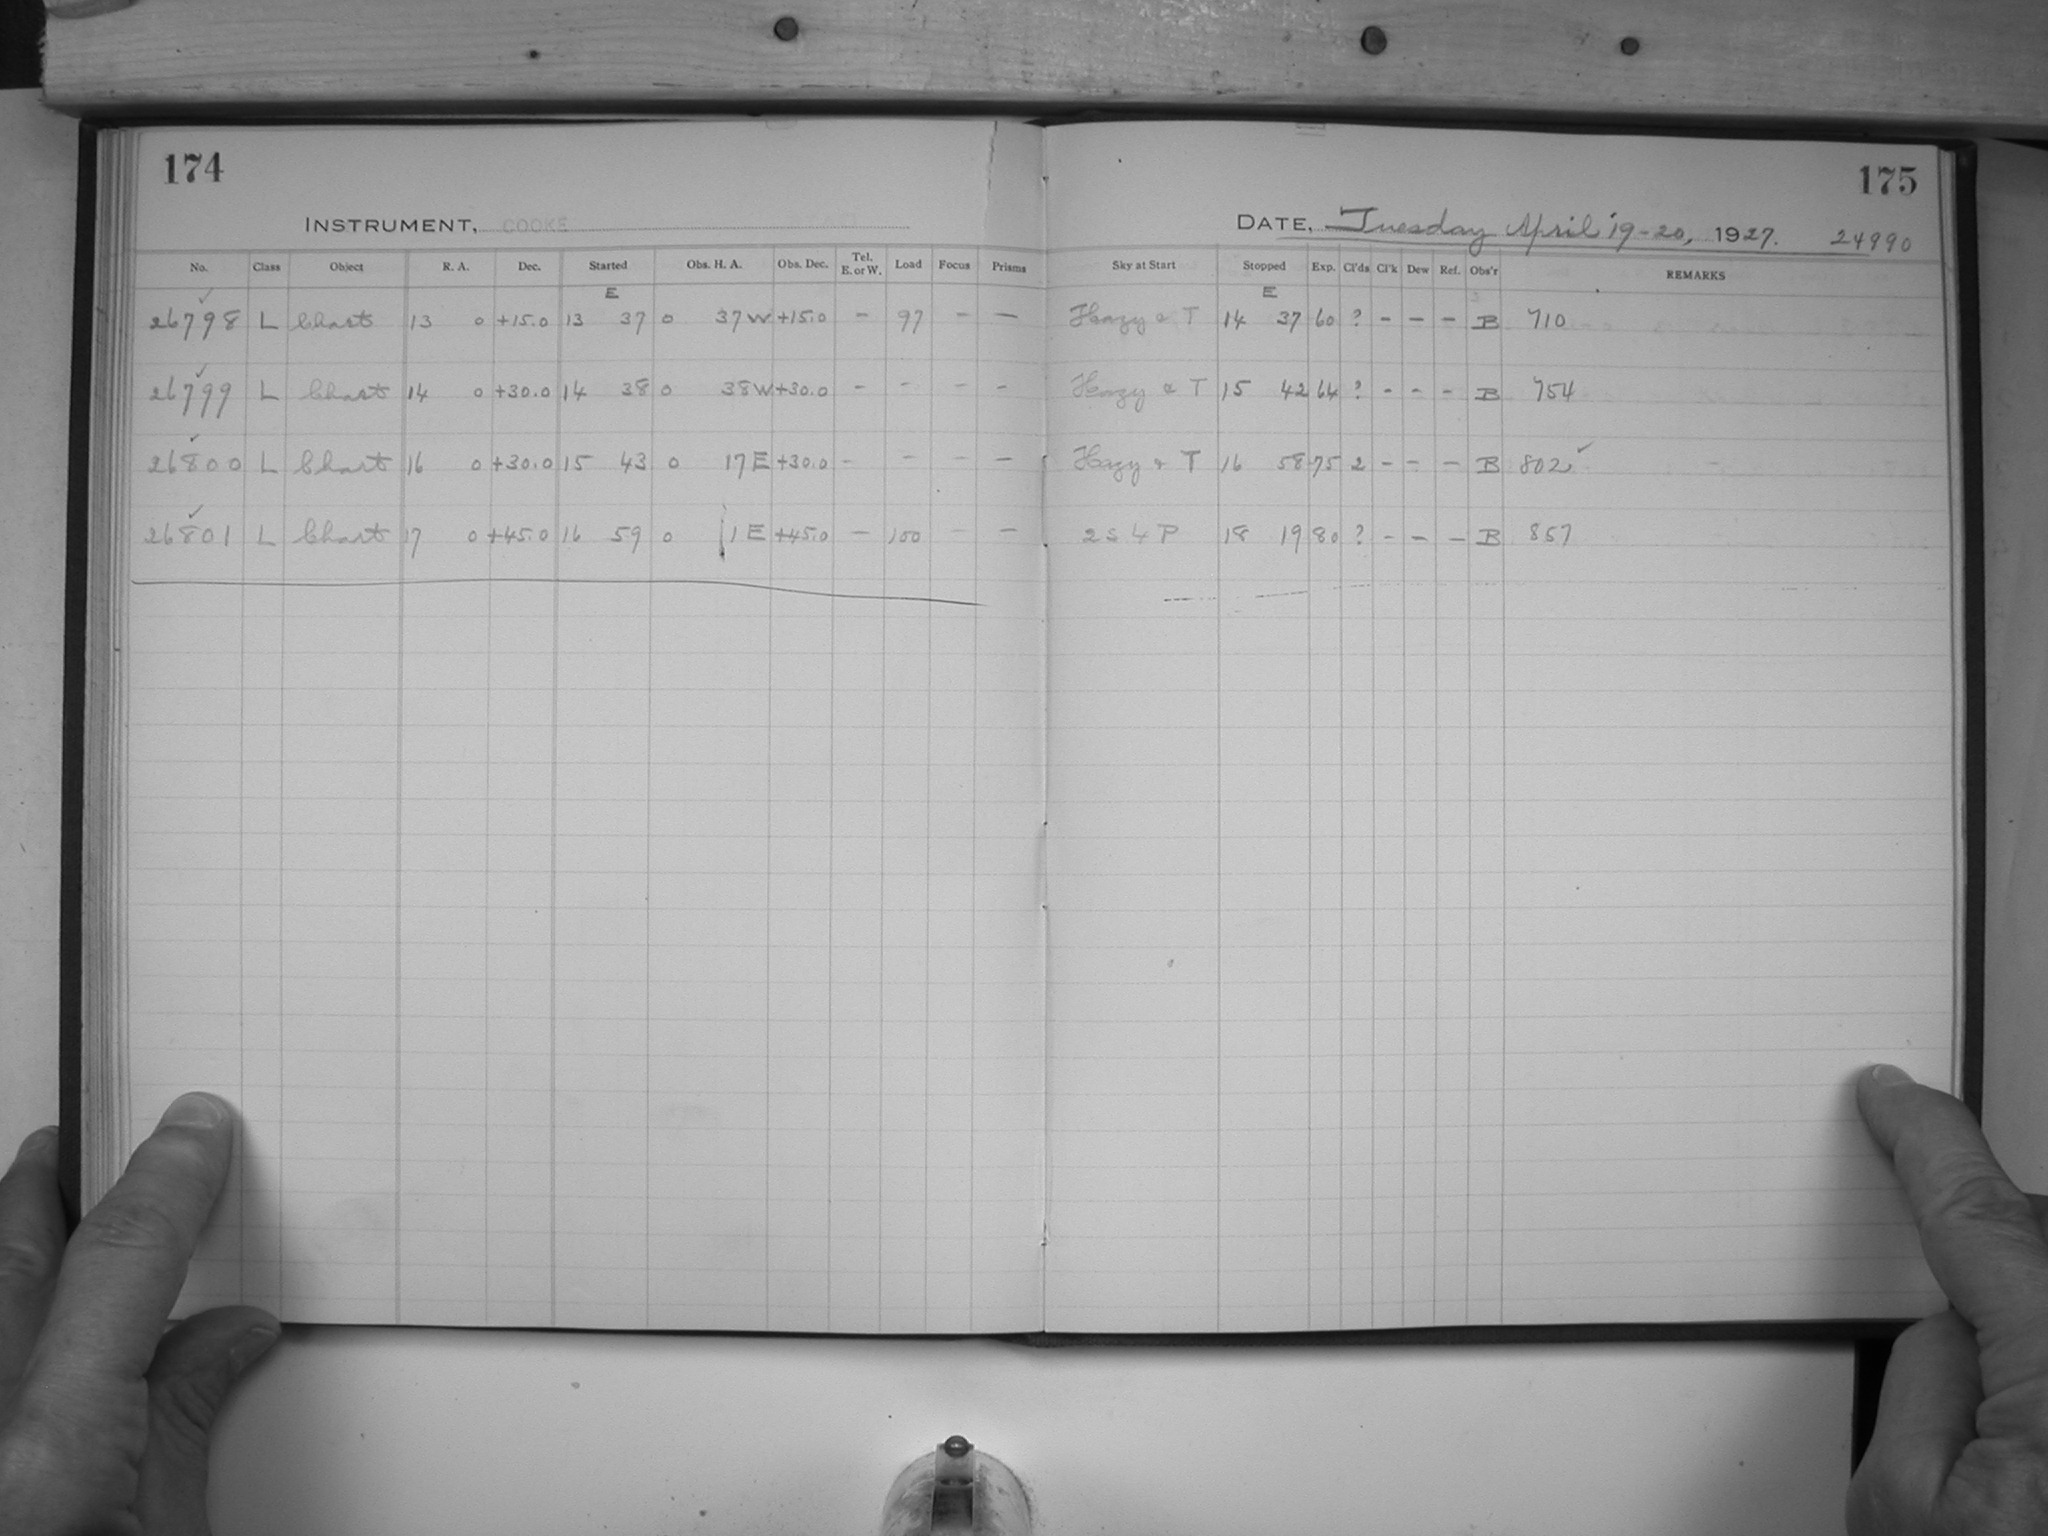 174
INSTRUMENT, COOKE
No. Class Object R. A. Dec. Started Obs. H. A. Obs. Dec. Tel. E. or W. Load Focus Prisms
E
26798 L Chart 13 0 +15.0 13 37 0 37 W +15.0 - 97 - -
26799 L Chart 14 0 +30.0 14 38 0 38 W +30.0 - - - -
26800 L Chart 16 0 +30.0 15 43 0 17 E +30.0 - - - -
26801 L Chart 17 0 +45.0 16 59 0 1 E +45.0 - 100 - -
175
DATE, Tuesday April 19-20, 1927. 24990
Sky at Start Stopped Exp. Cl'ds Cl'k Dew Ref. Obs'r REMARKS
E
Hazy & T 14 37 60 ? - - - B 710
Hazy & T 15 42 64 ? - - - B 754
Hazy & T 16 58 75 2 - - - B 802 ✓
2 S 4 P 18 19 80 ? - - - B 857